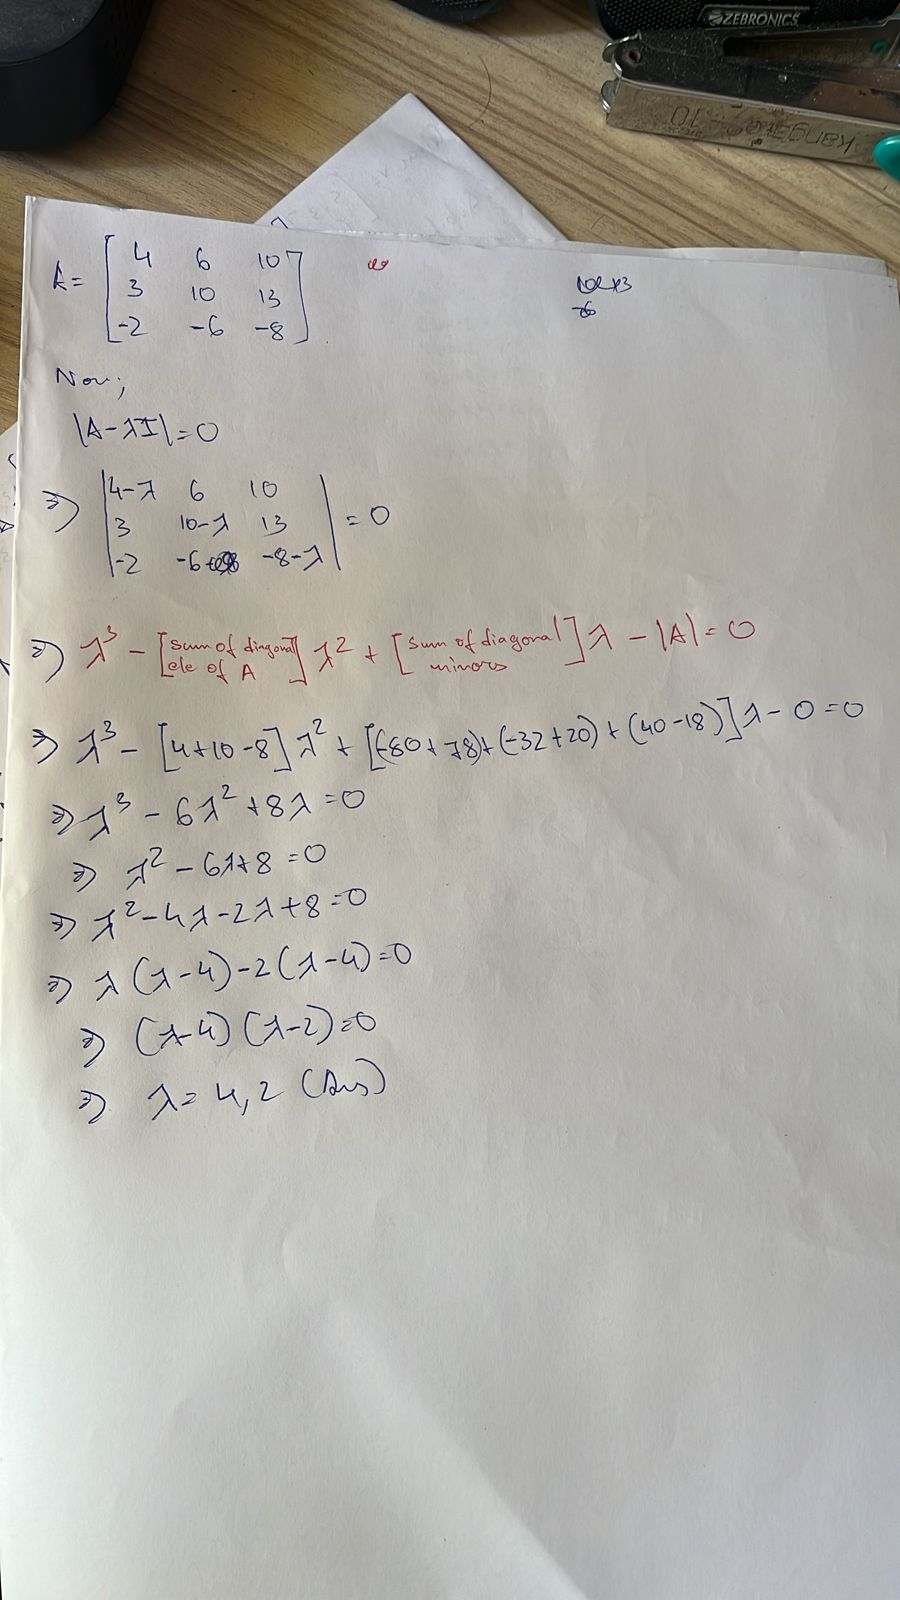 ZEBRONICS
KANGARO - 10
A = [ 4 6 10
3 10 13
-2 -6 -8 ]
Now;
|A-λI| = 0
⇒) | 4-λ 6 10
3 10-λ 13 | = 0
-2 -6 -8-λ |
⇒) λ³ - [sum of diagonal ele of A] λ² + [sum of diagonal minors] λ - |A| = 0
⇒) λ³ - [4+10-8] λ² + [(-80+78)+(-32+20)+(40-18)] λ - 0 = 0
⇒) λ³ - 6λ² + 8λ = 0
⇒) λ² - 6λ + 8 = 0
⇒) λ² - 4λ - 2λ + 8 = 0
⇒) λ (λ-4) - 2 (λ-4) = 0
⇒) (λ-4) (λ-2) = 0
⇒) λ = 4, 2 (Ans)